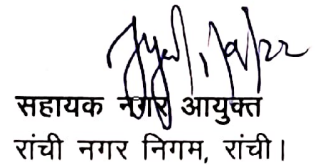 सहायक नगर आयुक्त
रांची नगर निगम, रांची।